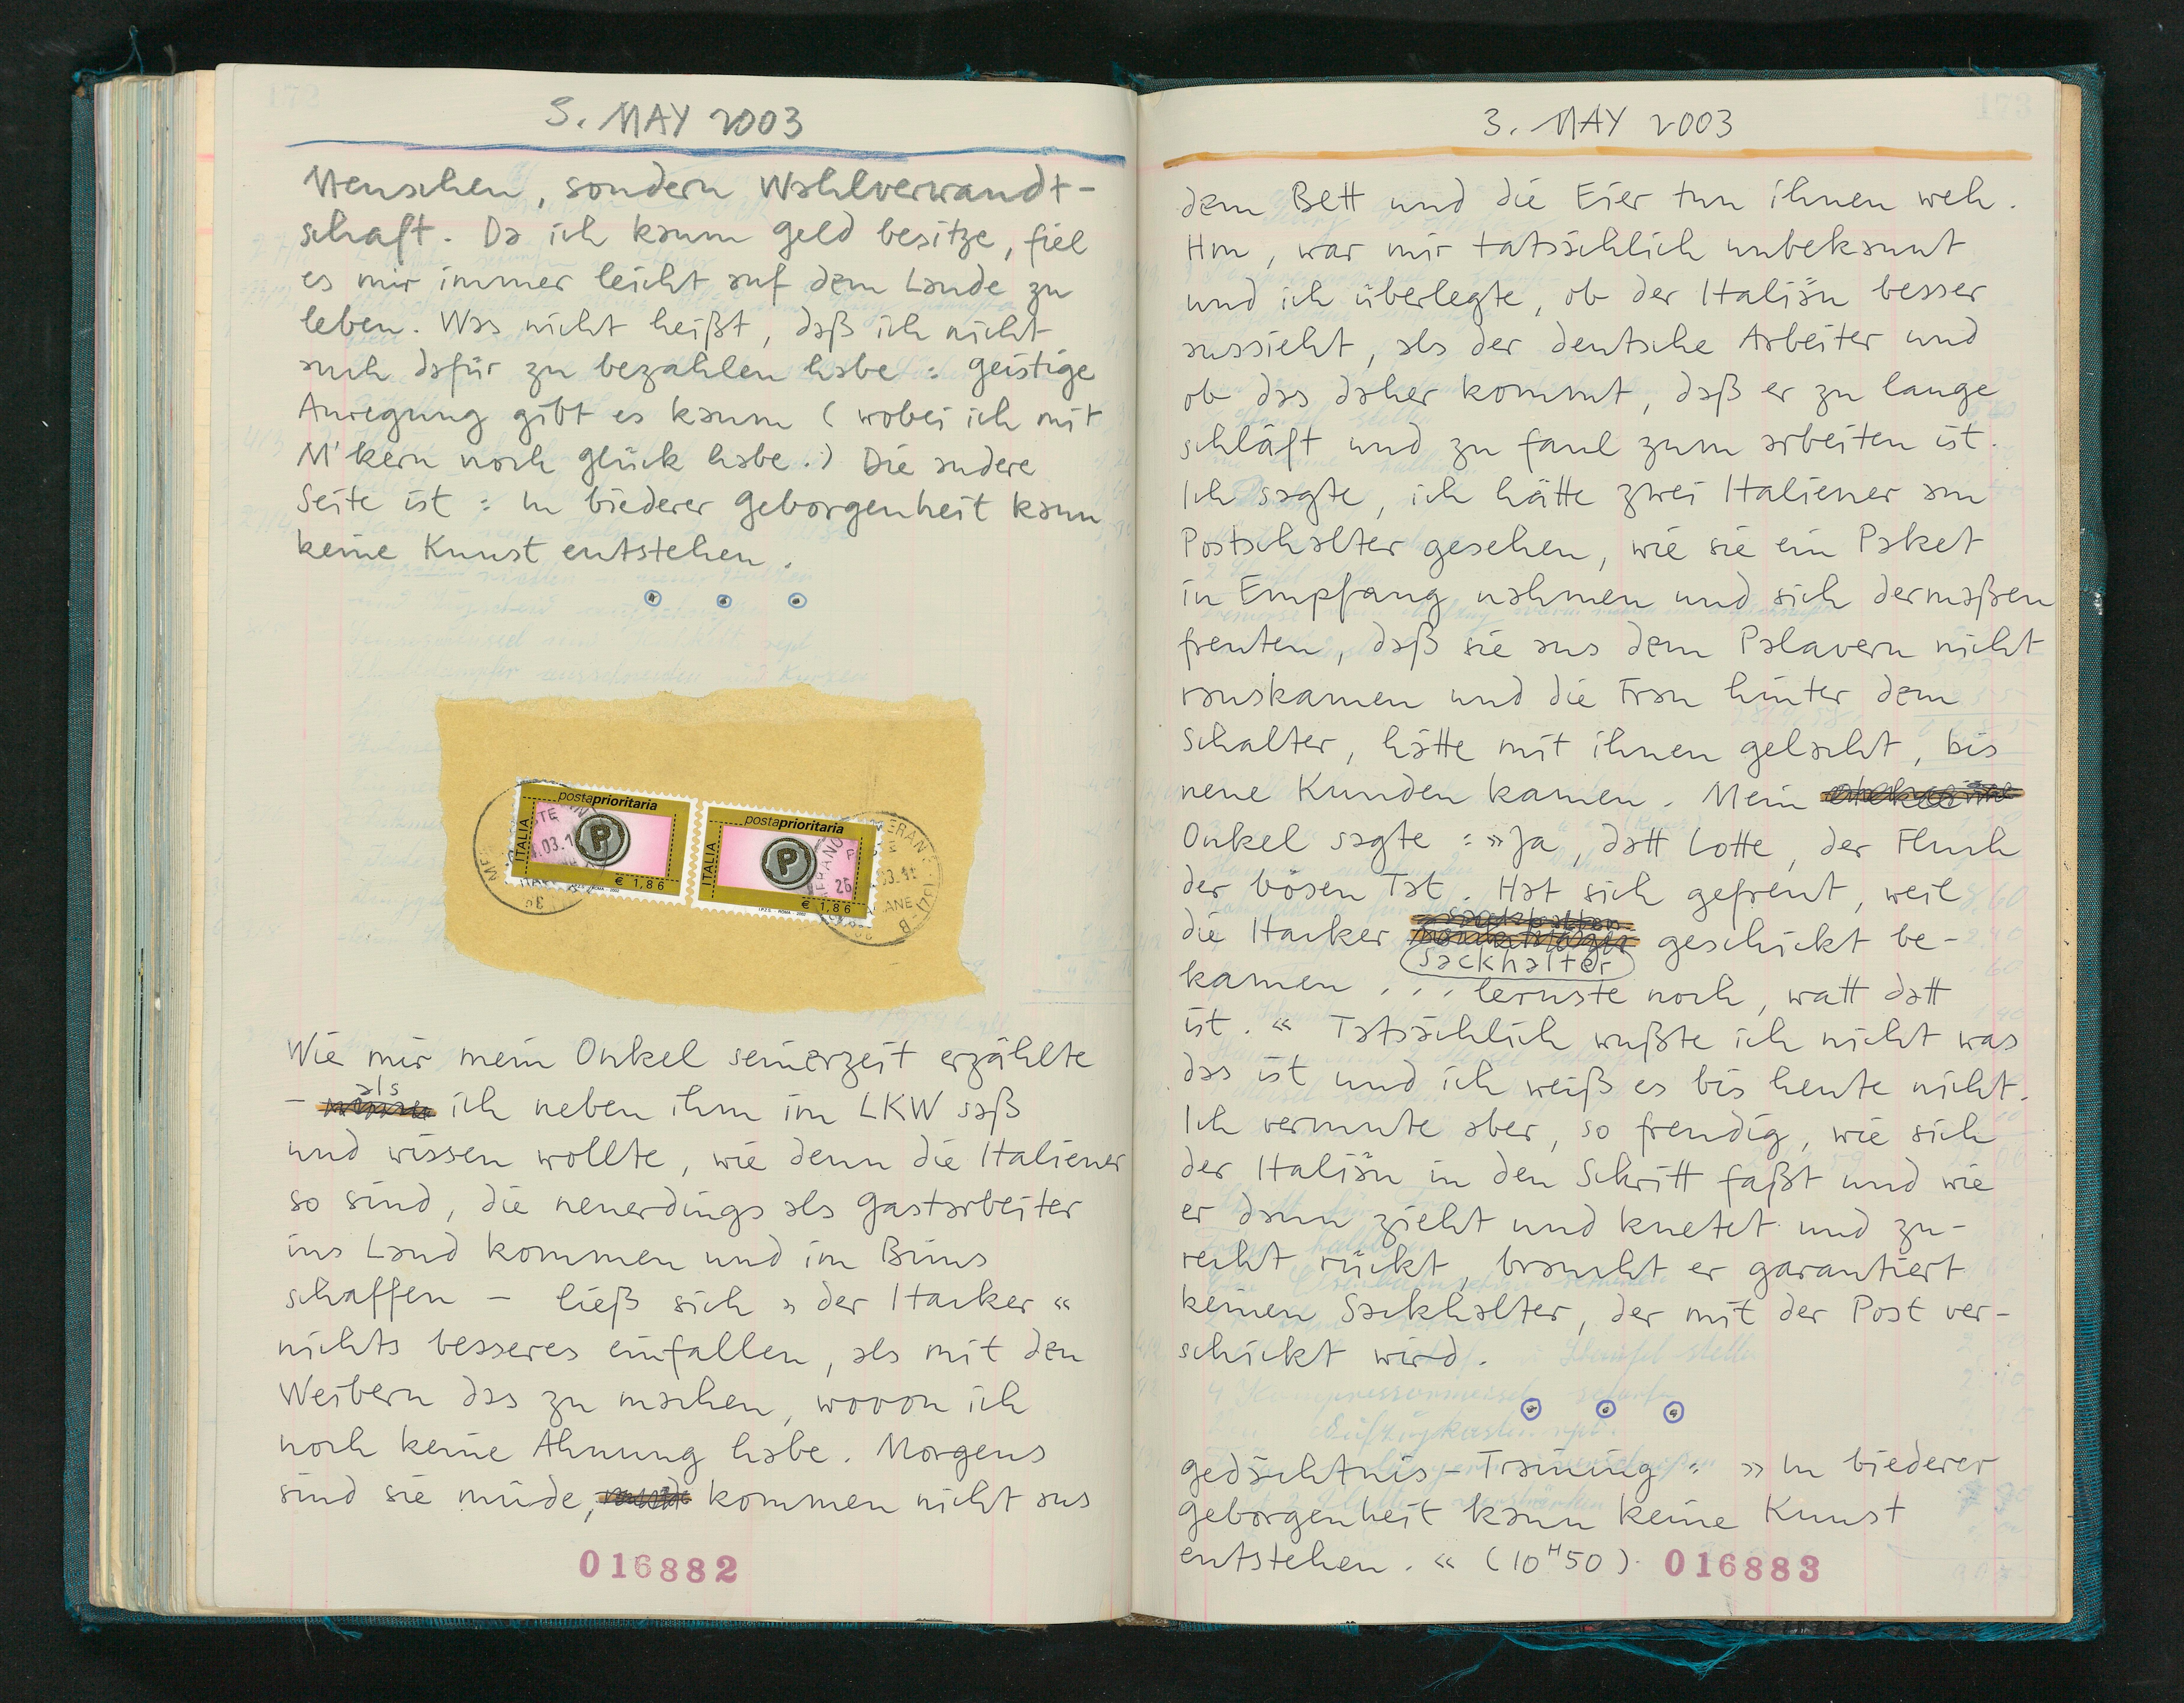 172
3. MAY 2003
Menschen, sondern Wahlverwandt-
schaft. Da ich kaum Geld besitze, fiel
es mir immer leicht auf dem Lande zu
leben. Was nicht heißt, daß ich nicht
auch dafür zu bezahlen habe: geistige
Anregung gibt es kaum (wobei ich mit
M'kern noch Glück habe.) Die andere
Seite ist: In biederer Geborgenheit kann
keine Kunst entstehen.
postaprioritaria
ITALIA
P
€ 1,86
postaprioritaria
ITALIA
P
€ 1,86
Wie mir mein Onkel seinerzeit erzählte
- als ich neben ihm im LKW saß
und wissen wollte, wie denn die Italiener
so sind, die neuerdings als Gastarbeiter
ins Land kommen und im Bims
schaffen - ließ sich »der Itacker«
nichts besseres einfallen, als mit den
Weibern das zu machen, wovon ich
noch keine Ahnung habe. Morgens
sind sie müde, kommen nicht aus
016882
173
3. MAY 2003
dem Bett und die Eier tun ihnen weh.
Hm, war mir tatsächlich unbekannt
und ich überlegte, ob der Italiän besser
aussieht, als der deutsche Arbeiter und
ob das daher kommt, daß er zu lange
schläft und zu faul zum arbeiten ist.
Ich sagte, ich hätte zwei Italiener am
Postschalter gesehen, wie sie ein Paket
in Empfang nahmen und sich dermaßen
freuten, daß sie aus dem Palavern nicht
rauskamen und die Frau hinter dem
Schalter, hätte mit ihnen gelacht, bis
neue Kunden kamen. Mein
Onkel sagte: »Ja, datt Lotte, der Fluch
der bösen Tat. Hat sich gefreut, weil
die Itacker Sackhalter geschickt be-
kamen ... lernste noch, watt datt
ist.« Tatsächlich wußte ich nicht was
das ist und ich weiß es bis heute nicht.
Ich vermute aber, so freudig, wie sich
der Italiän in den Schritt faßt und wie
er dann zieht und knetet und zu-
recht rückt, braucht er garantiert
keinen Sackhalter, der mit der Post ver-
schickt wird.
Gedächtnis-Training: »In biederer
Geborgenheit kann keine Kunst
entstehen.« (10H50).
016883